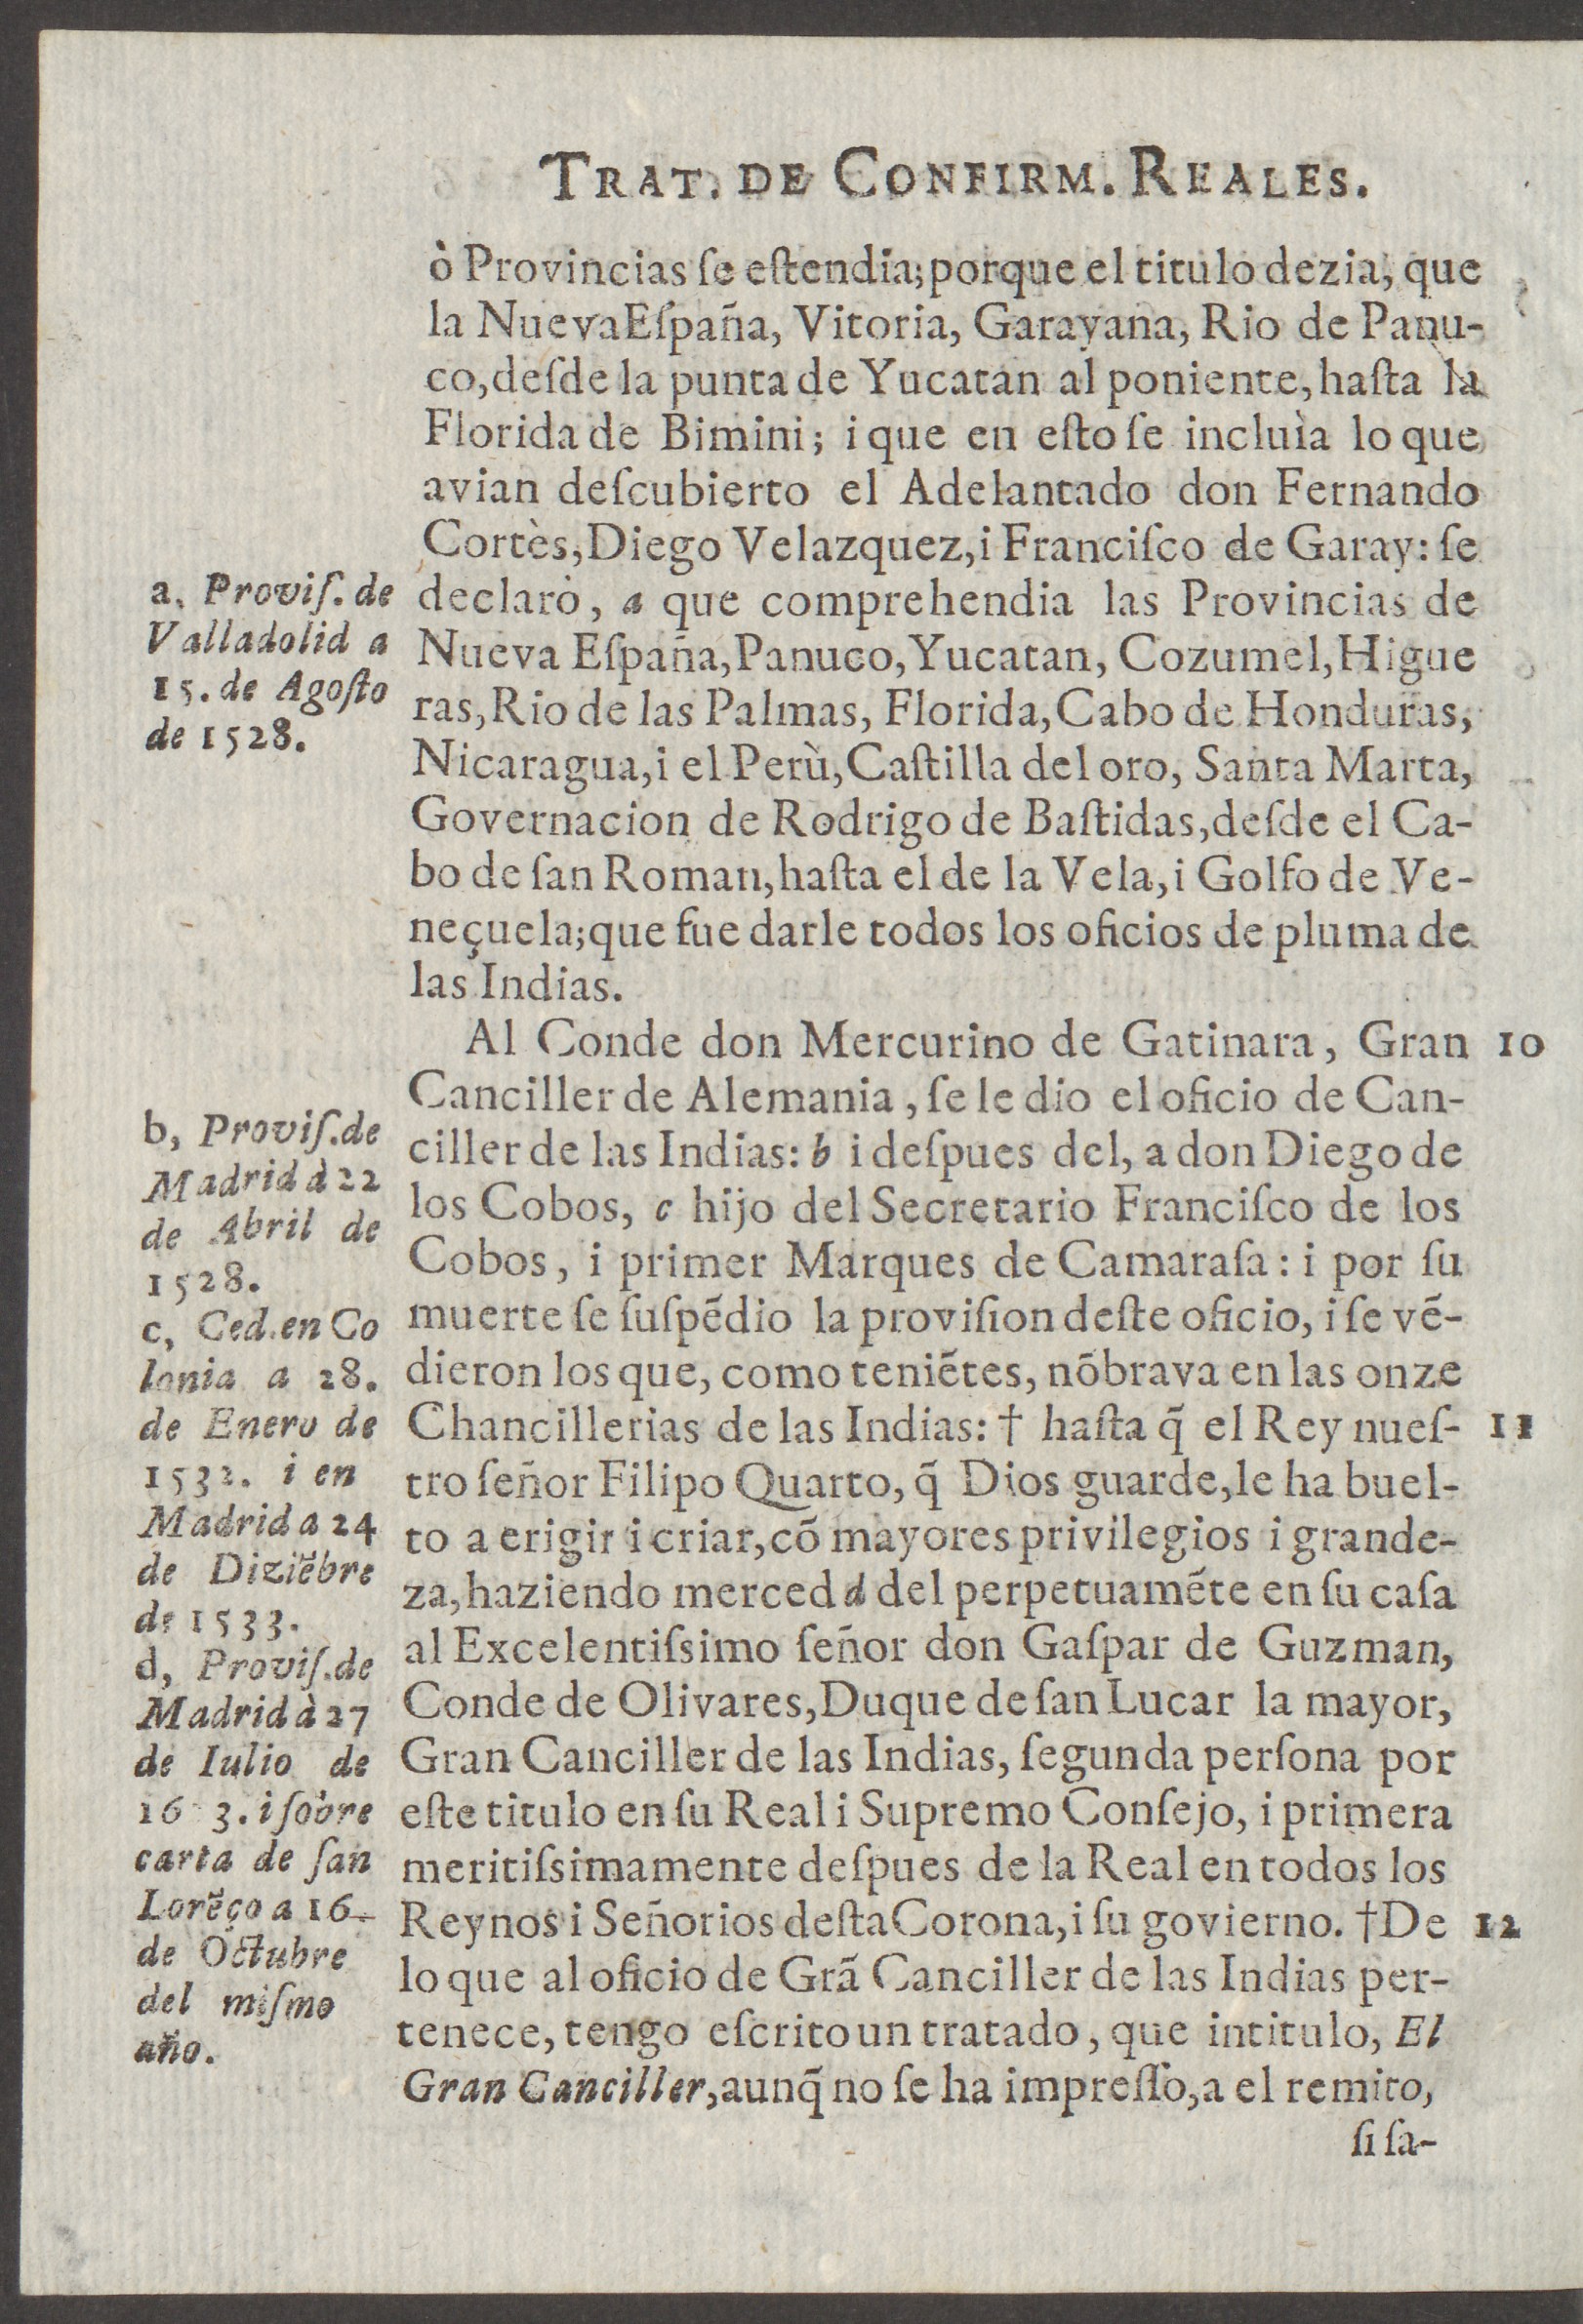 TRAT. DE CONFIRM. REALES.
ò Provincias ſe eſtendia; porque el titulo dezia, que
la Nueva Eſpaña, Vitoria, Garayana, Rio de Panu-
co, deſde la punta de Yucatan al poniente, haſta la
Florida de Bimini; i que en eſto ſe incluìa lo que
avian deſcubierto el Adelantado don Fernando
Cortès, Diego Velazquez, i Franciſco de Garay: ſe
declarò, a que comprehendia las Provincias de
Nueva Eſpaña, Panuco, Yucatan, Cozumel, Higue
ras, Rio de las Palmas, Florida, Cabo de Honduras,
Nicaragua, i el Perù, Caſtilla del oro, Santa Marta,
Governacion de Rodrigo de Baſtidas, deſde el Ca-
bo de ſan Roman, haſta el de la Vela, i Golfo de Ve-
neçuela; que fue darle todos los oficios de pluma de
las Indias.
Al Conde don Mercurino de Gatinara, Gran 10
Canciller de Alemania, ſe le dio el oficio de Can-
ciller de las Indias: b i deſpues del, a don Diego de
los Cobos, c hijo del Secretario Franciſco de los
Cobos, i primer Marques de Camaraſa: i por ſu
muerte ſe ſuſpẽdio la proviſion deſte oficio, i ſe vẽ-
dieron los que, como teniẽtes, nõbrava en las onze
Chancillerias de las Indias: † haſta q̃ el Rey nueſ- 11
tro ſeñor Filipo Quarto, q̃ Dios guarde, le ha buel-
to a erigir i criar, cõ mayores privilegios i grande-
za, haziendo merced d del perpetuamẽte en ſu caſa
al Excelentiſsimo ſeñor don Gaſpar de Guzman,
Conde de Olivares, Duque de ſan Lucar la mayor,
Gran Canciller de las Indias, ſegunda perſona por
eſte titulo en ſu Real i Supremo Conſejo, i primera
meritiſsimamente deſpues de la Real en todos los
Reynos i Señorios deſta Corona, i ſu govierno. † De 12
lo que al oficio de Grã Canciller de las Indias per-
tenece, tengo eſcrito un tratado, que intitulo, El
Gran Canciller, aunq̃ no ſe ha impreſſo, a el remito,
ſi ſa-
a, Proviſ. de
Valladolid a
15. de Agoſto
de 1528.
b, Proviſ. de
Madrid à 22
de Abril de
1528.
c, Ced. en Co
lonia a 28.
de Enero de
1532. i en
Madrid a 24
de Diziẽbre
de 1533.
d, Proviſ. de
Madrid à 27
de Iulio de
i ſobre
carta de ſan
Lorẽço a 16.
de Octubre
del miſmo
año.